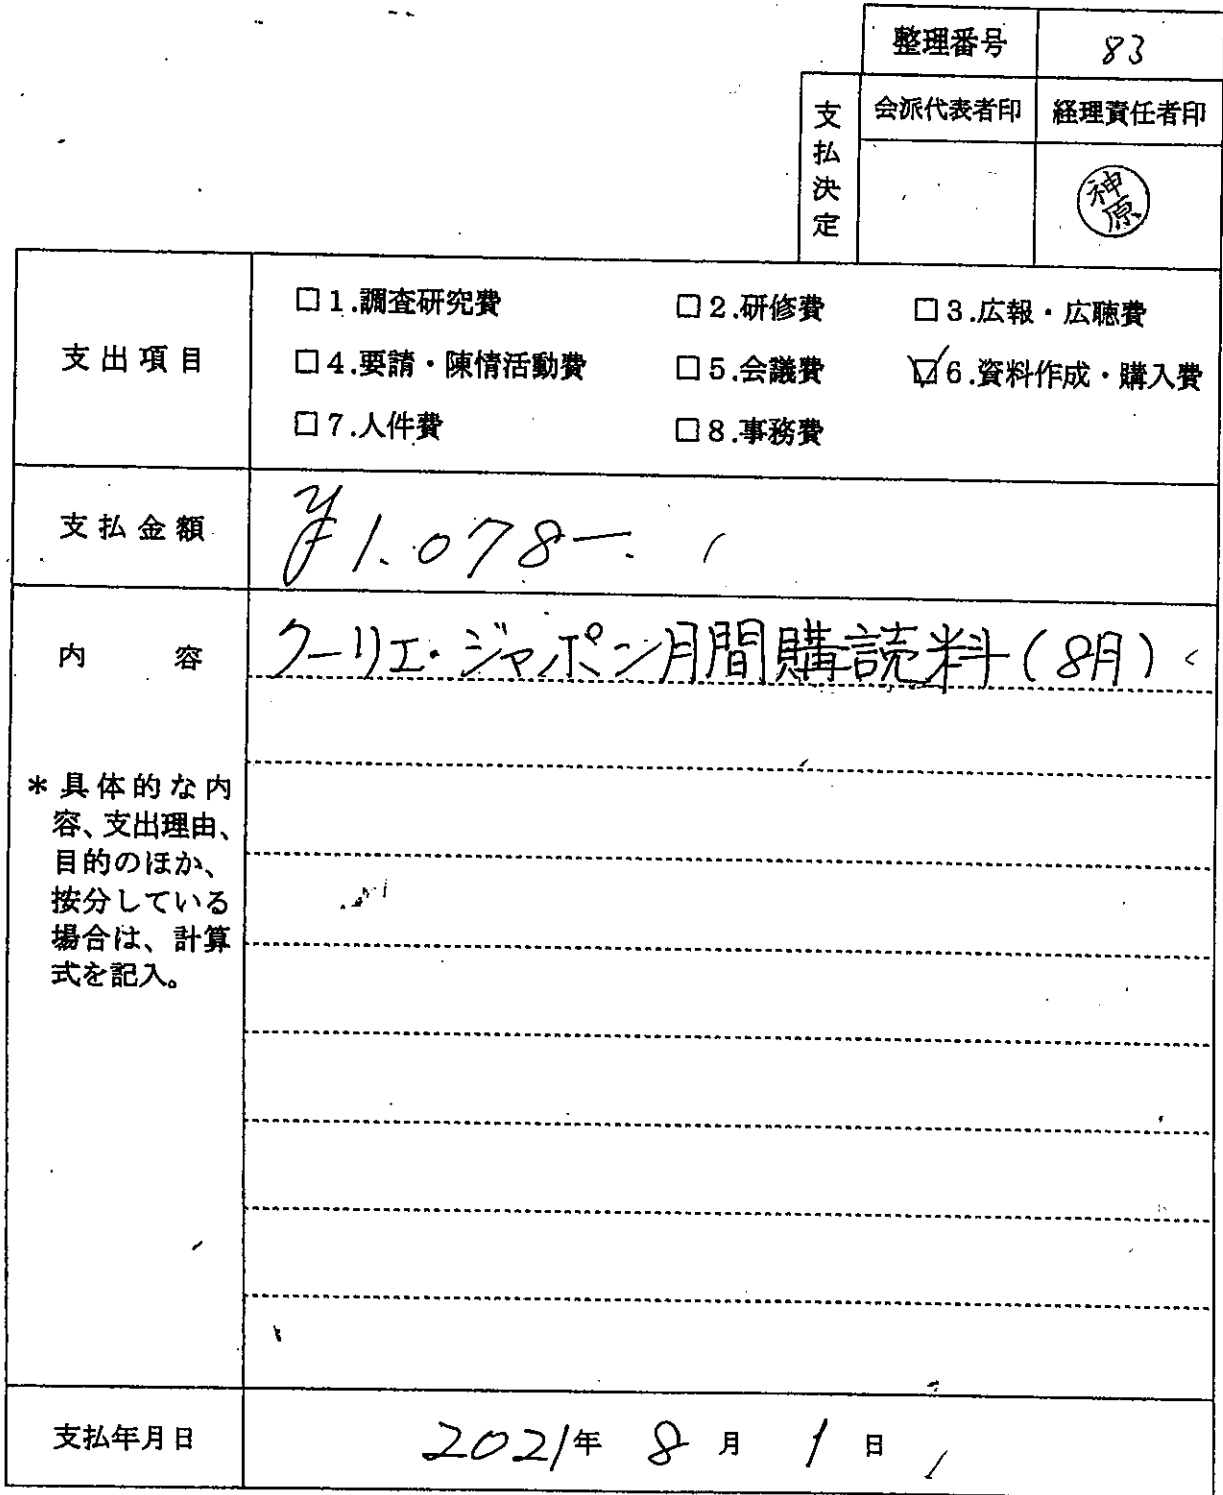 整理番号 83
支払決定 会派代表者印 経理責任者印
神原
支出項目
□1.調査研究費 □2.研修費 □3.広報・広聴費
□4.要請・陳情活動費 □5.会議費 ☑6.資料作成・購入費
□7.人件費 □8.事務費
支払金額 ¥1.078-.
内容 クーリエ・ジャポン月間購読料(8月)
*具体的な内
容、支出理由、
目的のほか、
按分している
場合は、計算
式を記入。
支払年月日 2021年 8月 1日